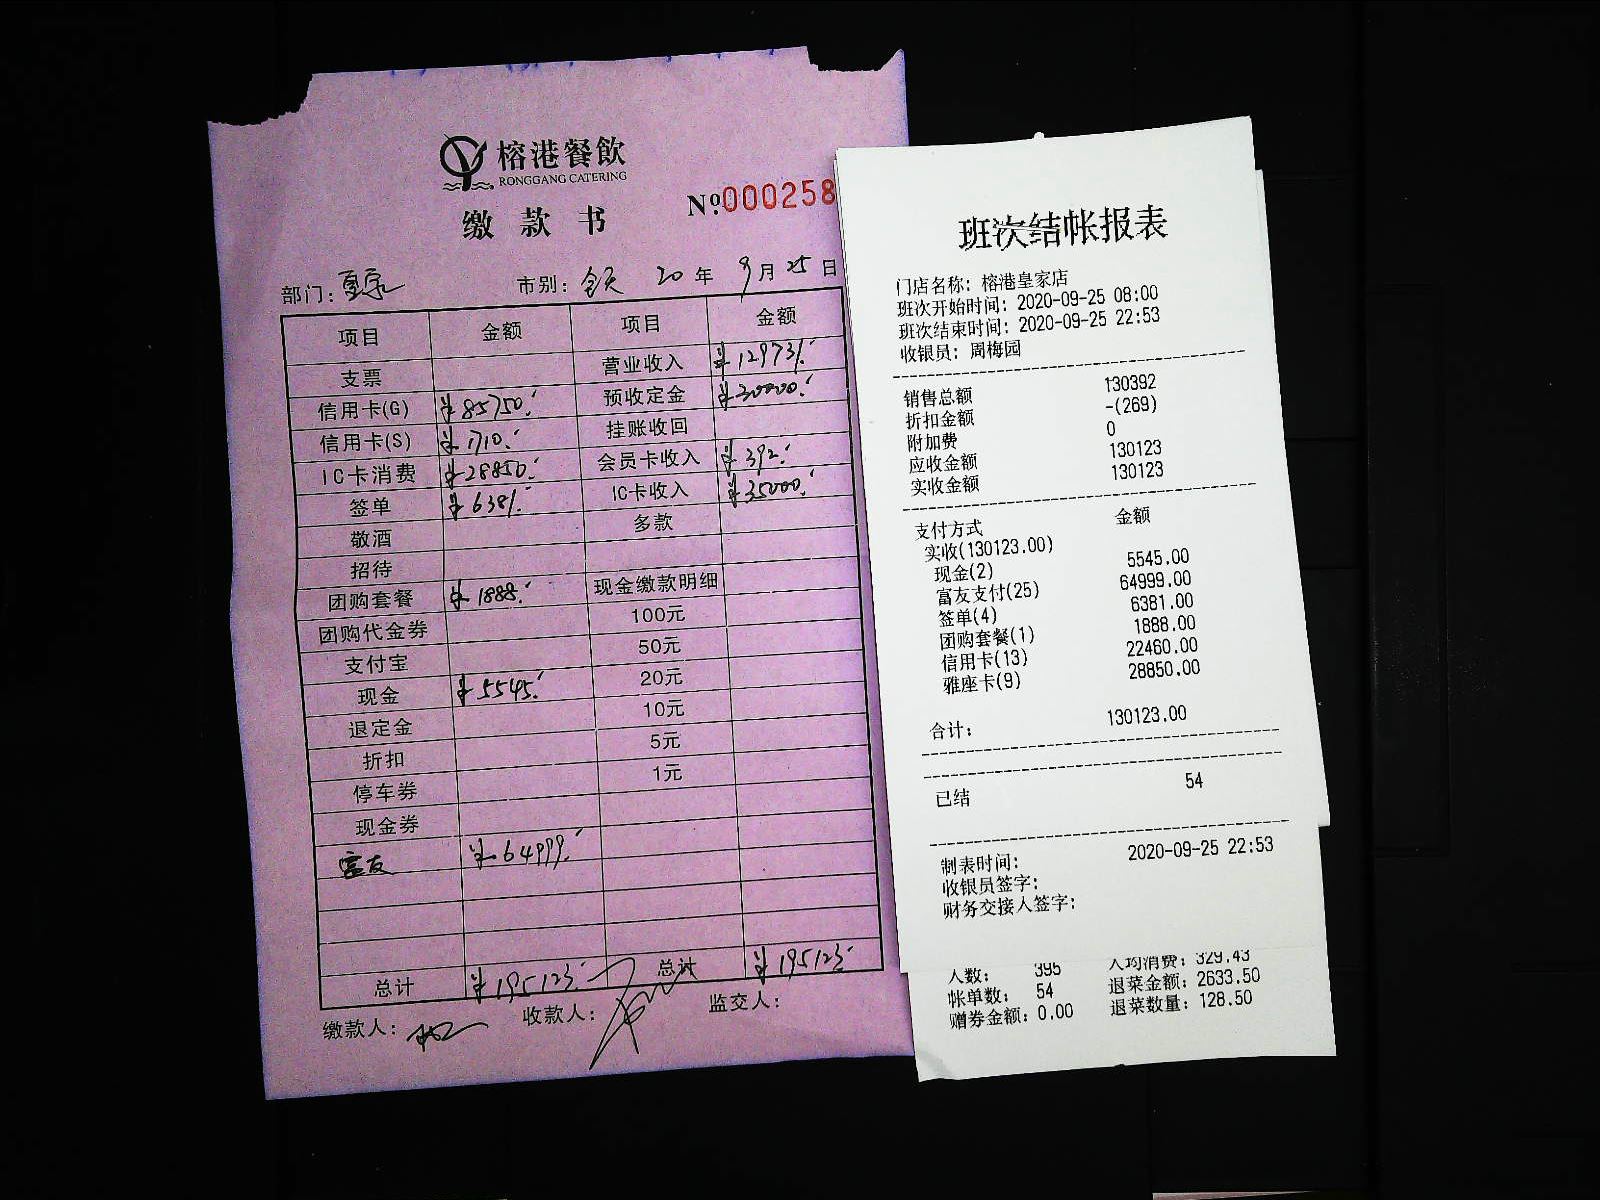 榕港餐飲
RONGGANG CATERING
缴款书
No:000258
部门: 市别:全天 20年9月25日
项目 金额 项目 金额
支票 营业收入 ¥129731.-
信用卡(G) ¥85750.- 预收定金 ¥30000.-
信用卡(S) ¥1710.- 挂账收回
IC卡消费 ¥28850.- 会员卡收入 ¥392.-
签单 ¥6381.- IC卡收入 ¥35000.-
敬酒 多款
招待
团购套餐 ¥1888.- 现金缴款明细
团购代金券 100元
支付宝 50元
现金 ¥5545.- 20元
退定金 10元
折扣 5元
停车券 1元
现金券
富友 ¥64999.-
总计 ¥195123.- 总计 ¥195123.-
缴款人: 收款人: 监交人:
班次结帐报表
门店名称: 榕港皇家店
班次开始时间: 2020-09-25 08:00
班次结束时间: 2020-09-25 22:53
收银员: 周梅园
销售总额 130392
折扣金额 -(269)
附加费 0
应收金额 130123
实收金额 130123
支付方式 金额
实收(130123.00)
现金(2) 5545.00
富友支付(25) 64999.00
签单(4) 6381.00
团购套餐(1) 1888.00
信用卡(13) 22460.00
雅座卡(9) 28850.00
合计: 130123.00
已结 54
制表时间: 2020-09-25 22:53
收银员签字:
财务交接人签字:
人数: 395 人均消费: 329.43
帐单数: 54 退菜金额: 2633.50
赠券金额: 0.00 退菜数量: 128.50